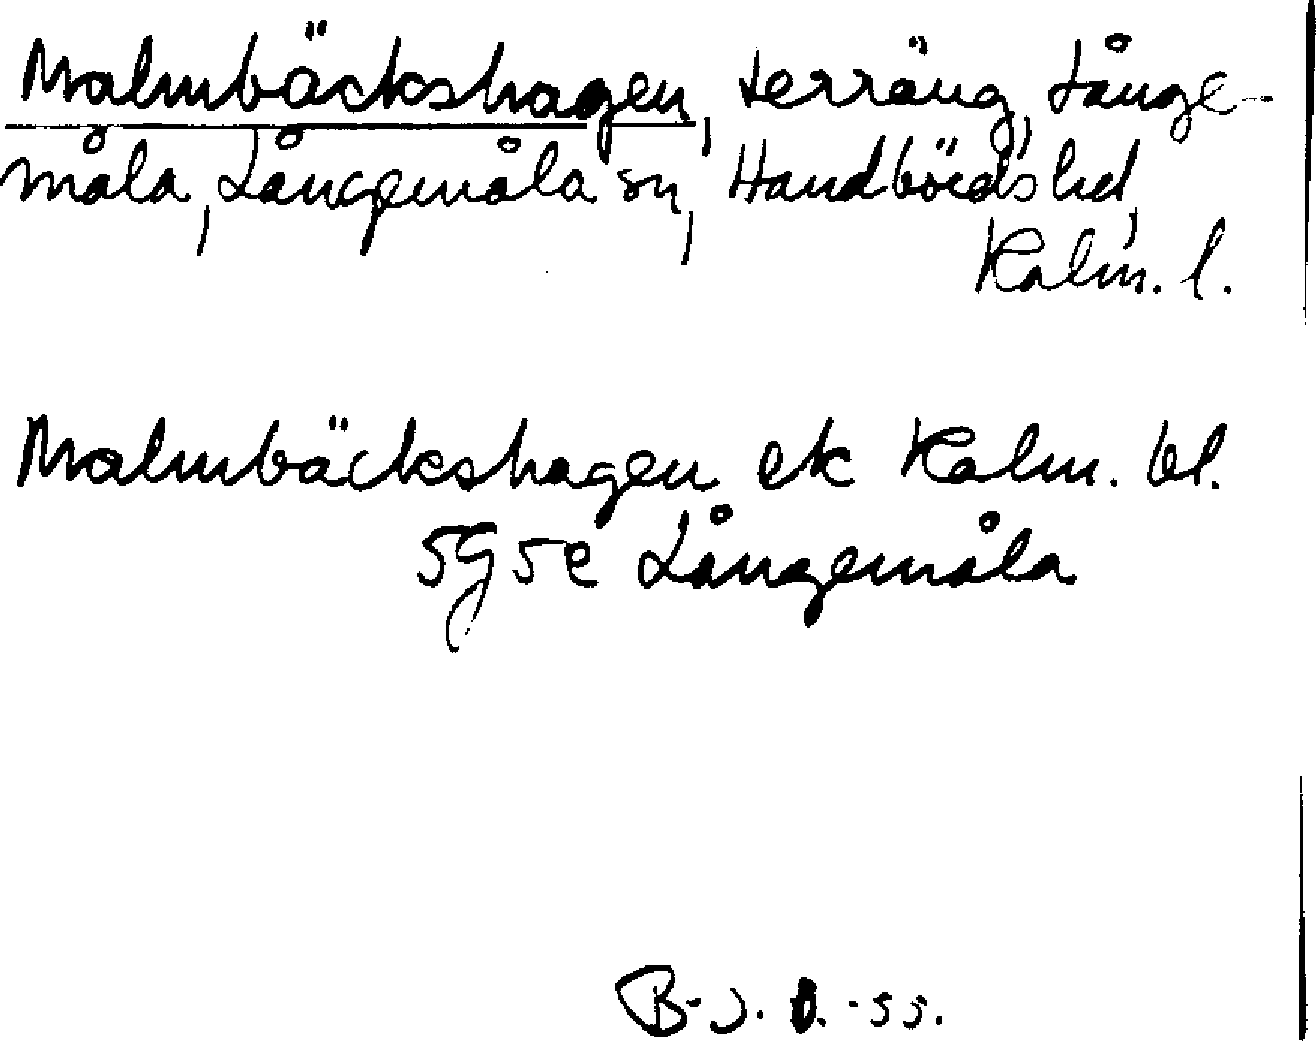 Malmbäckshagen, terräng, Långe-
måla, Långemåla sn, Handbörds hd,
Kalm. l.
Malmbäckshagen ek Kalm. bl.
5g5e Långemåla
B-J. O. -55.